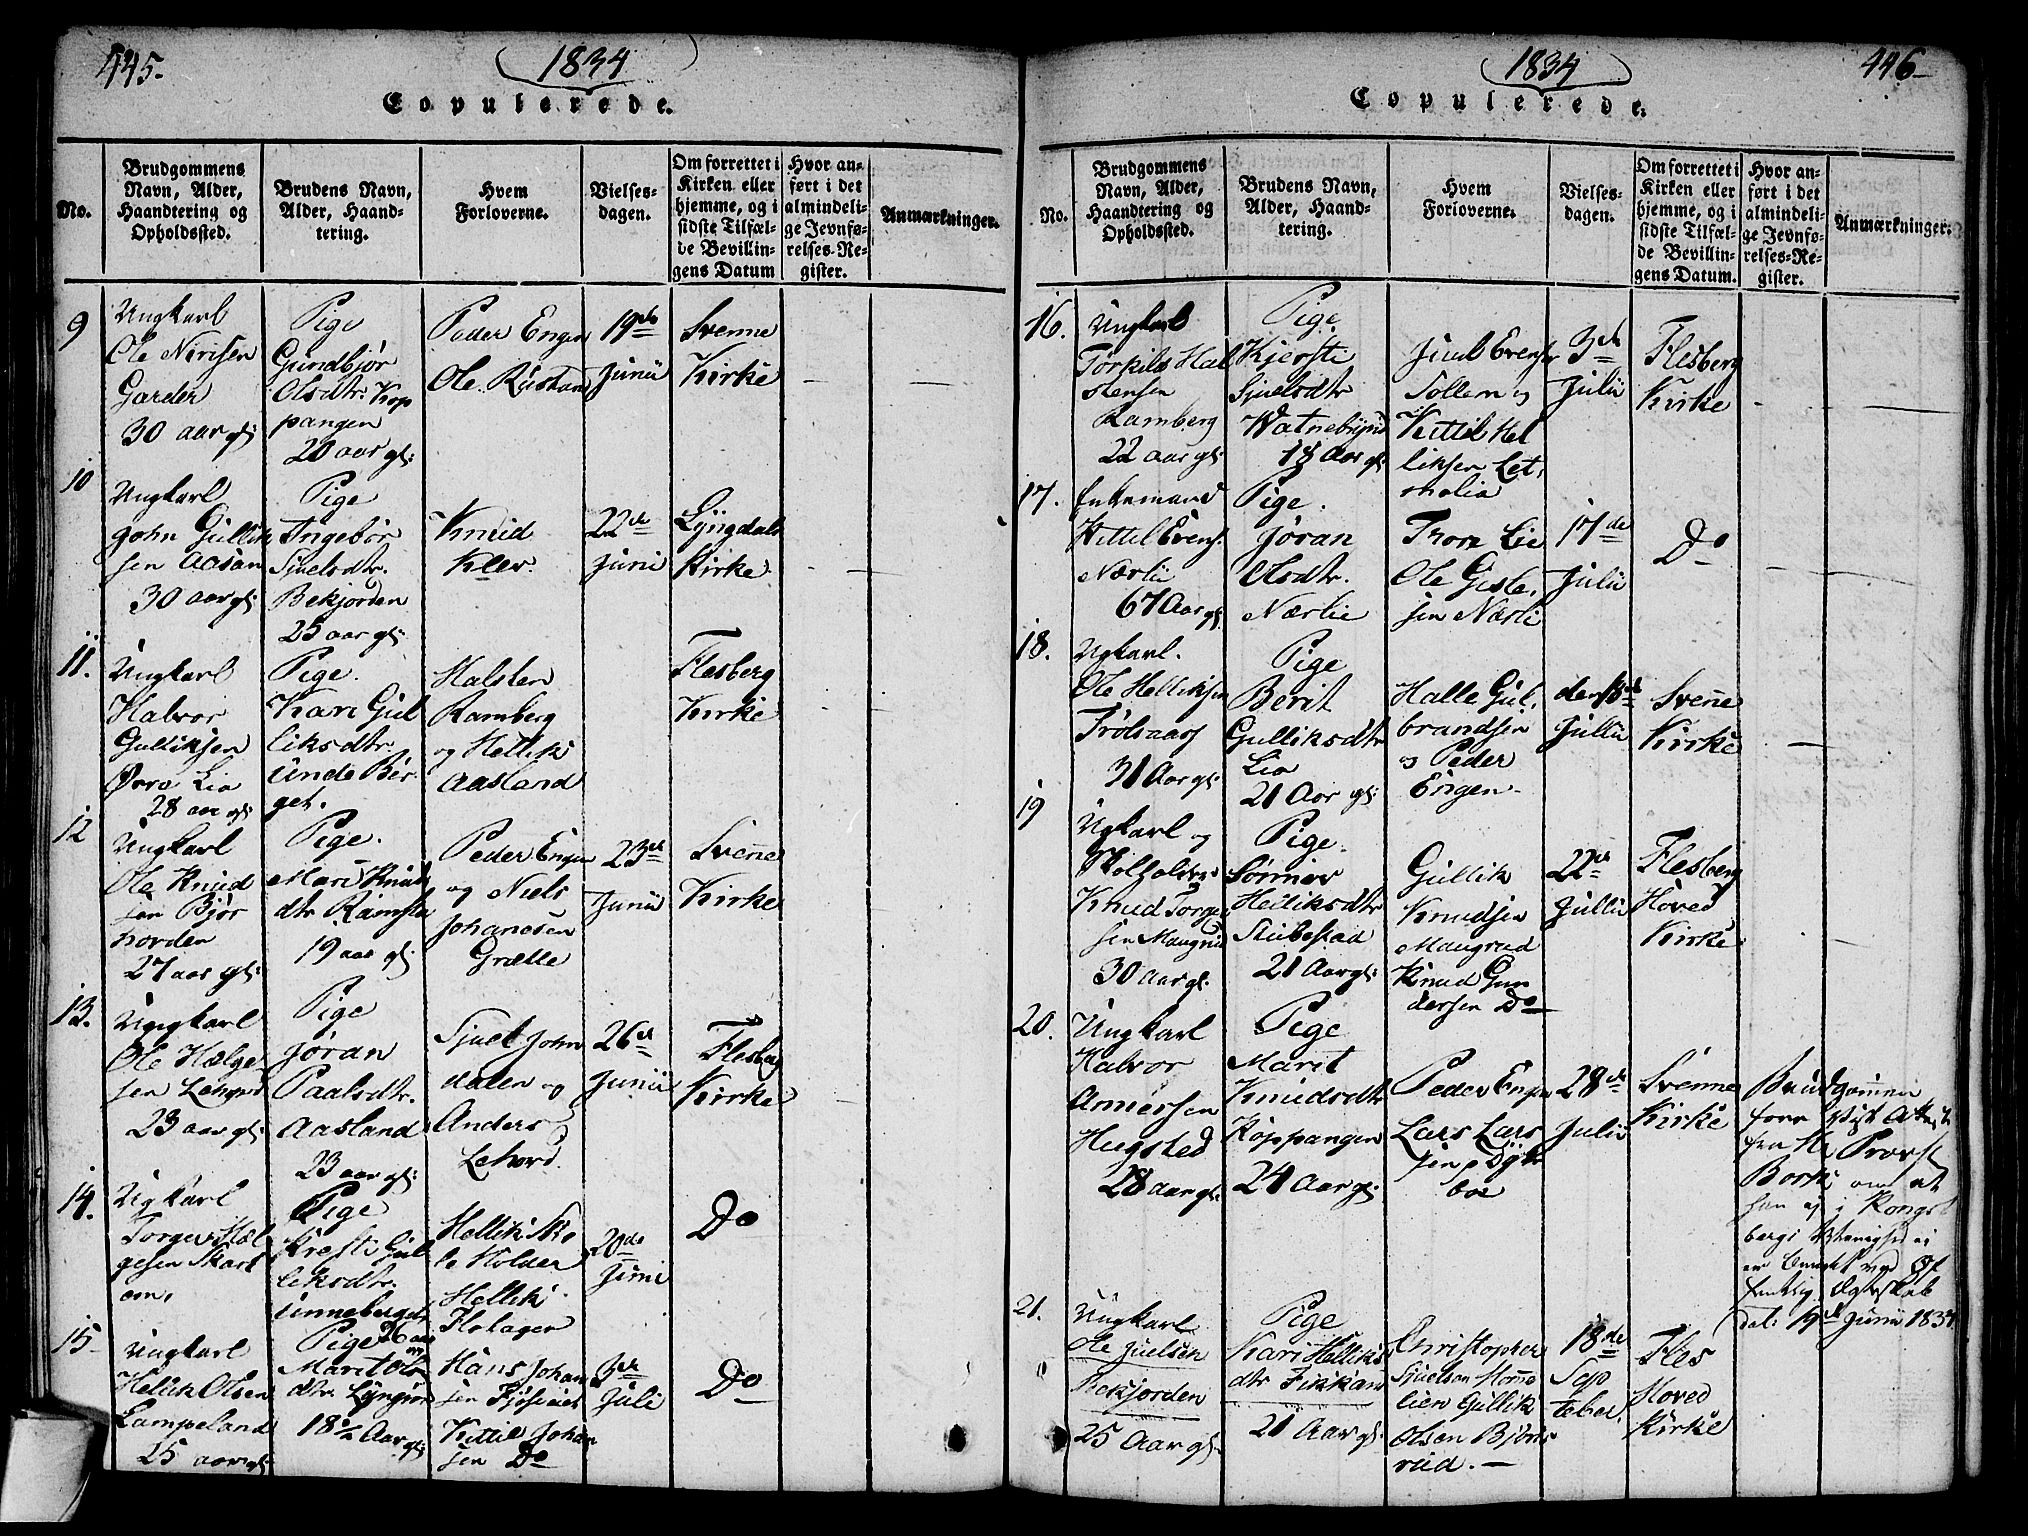 445.
1834
Copulerede.
No.
Brudgommens
Navn, Alder,
Haandtering og
Opholdssted.
Brudens Navn,
Alder, Haand-
tering.
Hvem
Forloverne.
Vielses-
dagen.
Om forrettet i
Kirken eller
hjemme, og i
sidste Tilfæl-
de Bevillin-
gens Datum
Hvor an-
ført i det
almindeli-
ge Jevnfø-
relses-Re-
gister.
Anmærkninger.
9
Ungkarl
Ole Nirisen
Garder
30 aar gl:
Pige
Gundbjør
Olsdtr. Kop
pangen
20 aar gl:
Peder Engen
Ole Rustan
19de
Junii
Svenne
Kirke
10
Ungkarl
John Gullik
sen Aasan
30 aar gl:
Pige
Ingebør
Sjuelsdtr.
Bekjorden
25 aar gl:
Knud
Klev.
22de
Juni
Lyngdals
Kirke
11.
Ungkarl
Halvor
Gulliksen
Øvre Lia
28 aar gl:
Pige.
Kari Gul
liksdtr.
unde Ber
get.
Halsten
Ramberg
og Hellik
Aasland
Flesberg
Kirke
12
Ungkarl
Ole Knud
sen Bjør
horden
27 aar gl:
Pige.
Mari Knuds
dtr Ramsta
19 aar gl:
Peder Engen
og Niels
Johanesen
Grætte
23de
Junii
Svenne
Kirke
13.
Ungkarl
Ole Hælge
sen Lehord
23 aar gl:
Pige
Jøran
Paalsdtr.
Aasland
23 aar gl:
Sjuel John
dalen og
Anders
Lehord.
26de
Junii
Flesberg
Kirke
14.
Ugkarl
Torger Hæl
gesen Skart
om,
Pige
Kresti Gul
leksdtr.
unneberget
26 aar
Hellik Sko
le Holder
Hellik
Flotager
20de
Juni
Do
15
Ungkarl
Hellik Olsen
Lampeland
25 aar gl:
Pige
Marit Ols
dtr. Lyngior
18½ Aar gl:
Hans Johan
sen
Kittil Johan
sen Do
Juli
Do
446
1834
Copulerede.
No.
Brudgommens
Navn, Alder,
Haandtering og
Opholdssted.
Brudens Navn,
Alder, Haand-
tering.
Hvem
Forloverne.
Vielses-
dagen.
Om forrettet i
Kirken eller
hjemme, og i
sidste Tilfæl-
de Bevillin-
gens Datum.
Hvor an-
ført i det
almindeli-
ge Jevnfø-
relses-Re-
gister.
Anmærkninger.
16.
Ungkarl
Torkils Hal
stensen
Ramberg
22 aar gl:
Pige
Kjersti
Sjuelsdtr
Watnebrynd
18 Aar gl:
Juul Evensr
Tollem og
Kittil Hel
liksen Let
holia
3de
Julii
Flesberg
Kirke
17.
Enkemand
Kittel Evens.
Nærlie
67 Aar gl:
Pige.
Jøran
Olsdtr.
Nærlie
Thore Lie
Ole Gisle
sen Nærli
17de
Julii
Do
18.
Ugkarl.
Ole Helliksen
Trolsaas
31 Aar gl:
Pige
Berit
Gulliksdtr
Lia
21 Aar gl:
Halle Gul
brandsen
og Peder
Engen
den 18de
Julii
Svenne
Kirke
19
Ugkarl og
Skolholder
Knud Torge
sen Maugrud
30 aar gl.
Pige.
Sønnive
Helliksdtr
Stubestad
21 Aar gl:
Gullik
Knudsen
Maugrud
Knud Gun
dersen Do
22de
Julii
Flesberg
Hoved
Kirke
20.
Ungkarl
Halvor
Amersen
Hugsted
28 aar gl:
Pige
Marit
Knudsdtr
Koppangen
24 Aar gl:
Peder Engen
Lars Lars
sen
boe
28de
Julii
Svenne
Kirke
Brudgommen
forevist Attest
fra Hr. Provst
Bork om at
han ej i Kongs
bergs
19de Junii 1834
21.
Ungkarl
Ole Juelsen
Bekjorden
25 Aar gl.
Pige
Kari Helliks
dtr Fikkan
21 Aar gl:
Christopher
Sjuelsen
lien Gullik
Olsen Bjøn
rud.
18de
Sep
tebr.
Fles
Hoved
Kirke